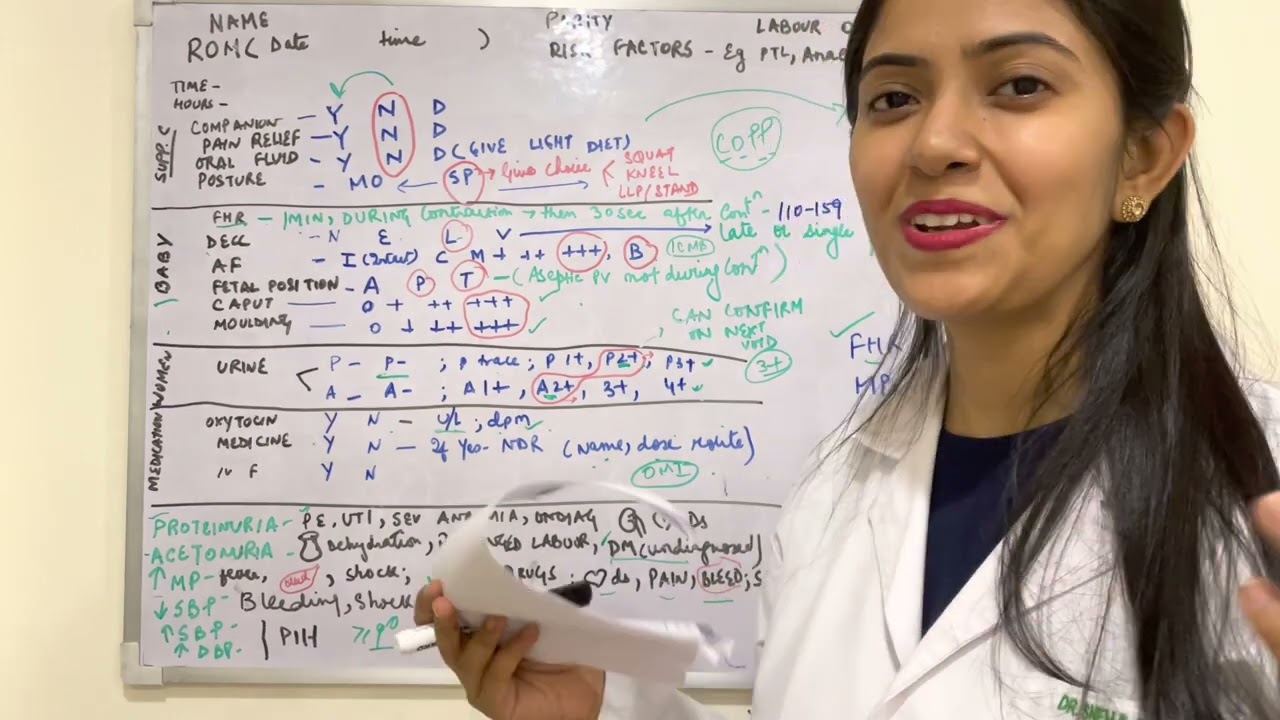 NAME PARITY LABOUR O
ROM( Date time ) RISK FACTORS - Eg PTL, Anae
TIME -
HOURS -
SUPP. C
COMPANION - Y N D
PAIN RELIEF - Y N D
ORAL FLUID - Y N D (GIVE LIGHT DIET)
POSTURE - MO SP → Give Choice SQUAT
KNEEL
LLP/STAND
COPP
BABY
FHR - 1MIN, DURING Contraction → then 30sec after Contn - 110-159
DECC - N E L V late or single
AF - I (Intact) C M+ ++ +++ B ICMB
FETAL POSITION - A P T - (Aseptic PV not during Contn)
CAPUT 0 + ++ +++
MOULDING 0 + ++ +++
CAN CONFIRM
ON NEXT
VOID
3+
FHR
MP
WOMEN
URINE P - P- ; P trace; P 1+, P2+, P3+
A - A- ; A1+, A2+, 3+, 4+
MEDICATION
OXYTOCIN Y N - U/L ; dpm
MEDICINE Y N - If Yes- NDR (Name, dose route)
IV F Y N
OMI
PROTEINURIA - PE, UTI, SEV ANEMIA, UNDIAG
ACETONURIA - Dehydration, LABOUR, DM (undiagnosed)
↑ MP - fever, shock; DRUGS; ds, PAIN, BLEED; S
↓ SBP - Bleeding, Shock
↑ SBP -
↑ DBP - PIH
DR.